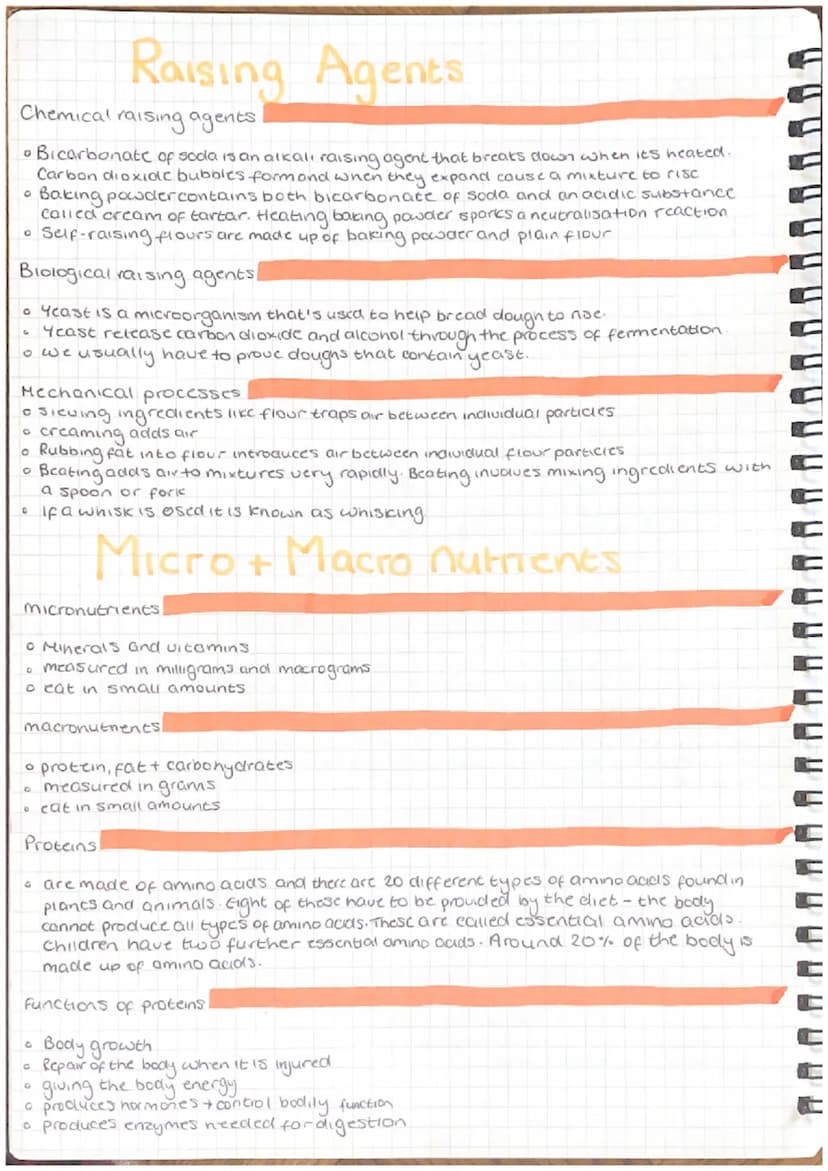 Raising Agents
Chemical raising agents
Bicarbonate of soda is an alkali raising agent that breats down when its heated.
Carbon dioxide bubbles form and when they expand cause a mixture to rise
Baking powder contains both bicarbonate of soda and an acidic substance
called cream of tartar. Heating baking powder sparks a neutralisation reaction
Self-raising flours are made up of baking powder and plain flour
Biological raising agents
Yeast is a microorganism that's used to help bread dough to rise.
Yeast release carbon dioxide and alcohol through the process of fermentation
we usually have to prove doughs that contain yeast.
Mechanical processes
Sieving ingredients like flour traps air between individual particles
creaming adds air
Rubbing fat into flour introduces air between individual flour particles
Beating adds air to mixtures very rapidly. Beating involves mixing ingredients with
a spoon or fork
If a whisk is used it is known as whisking
Micro + Macro nutrients
micronutrients
Minerals and vitamins
measured in milligrams and macrograms
eat in small amounts
macronutrients
protein, fat + carbohydrates
measured in grams
eat in small amounts
Proteins
are made of amino acids and there are 20 different types of amino acids found in
plants and animals. Eight of these have to be provided by the diet - the body
cannot produce all types of amino acids. These are called essential amino acids.
Children have two further essential amino acids. Around 20% of the body is
made up of amino acids.
Functions of proteins
Body growth
Repair of the body when it is injured
giving the body energy
produces hormones + control bodily function
produces enzymes needed for digestion